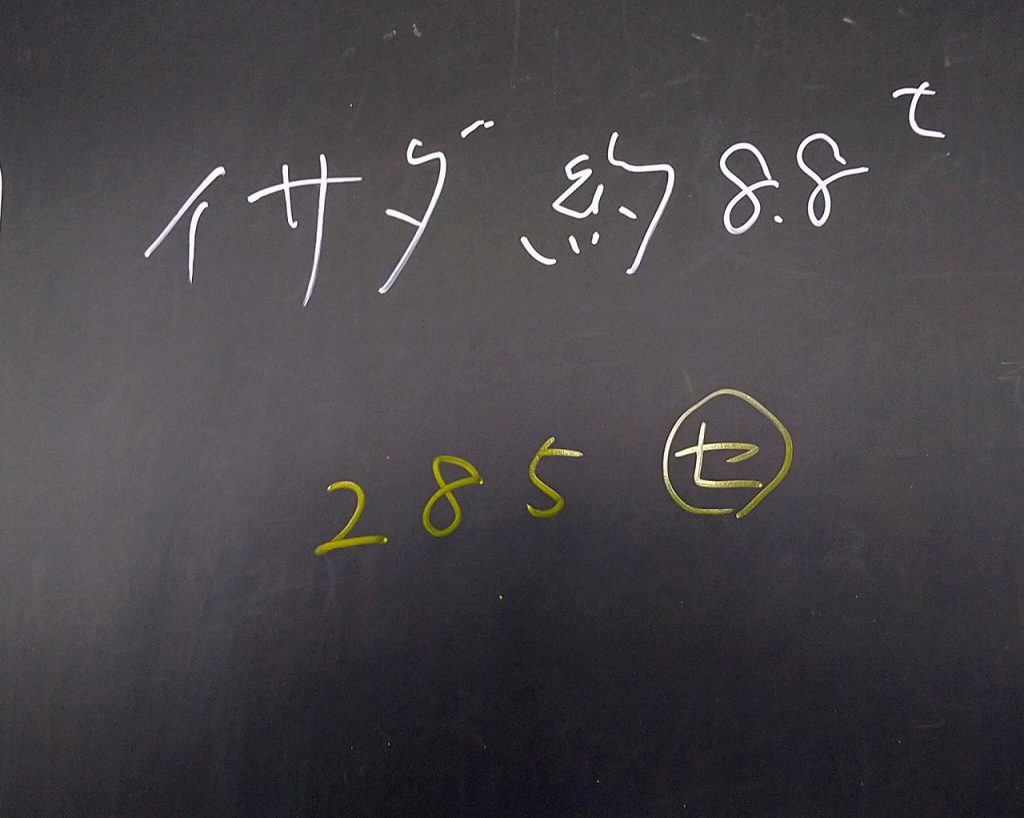 イサダ 約8.8t
285 ㋝